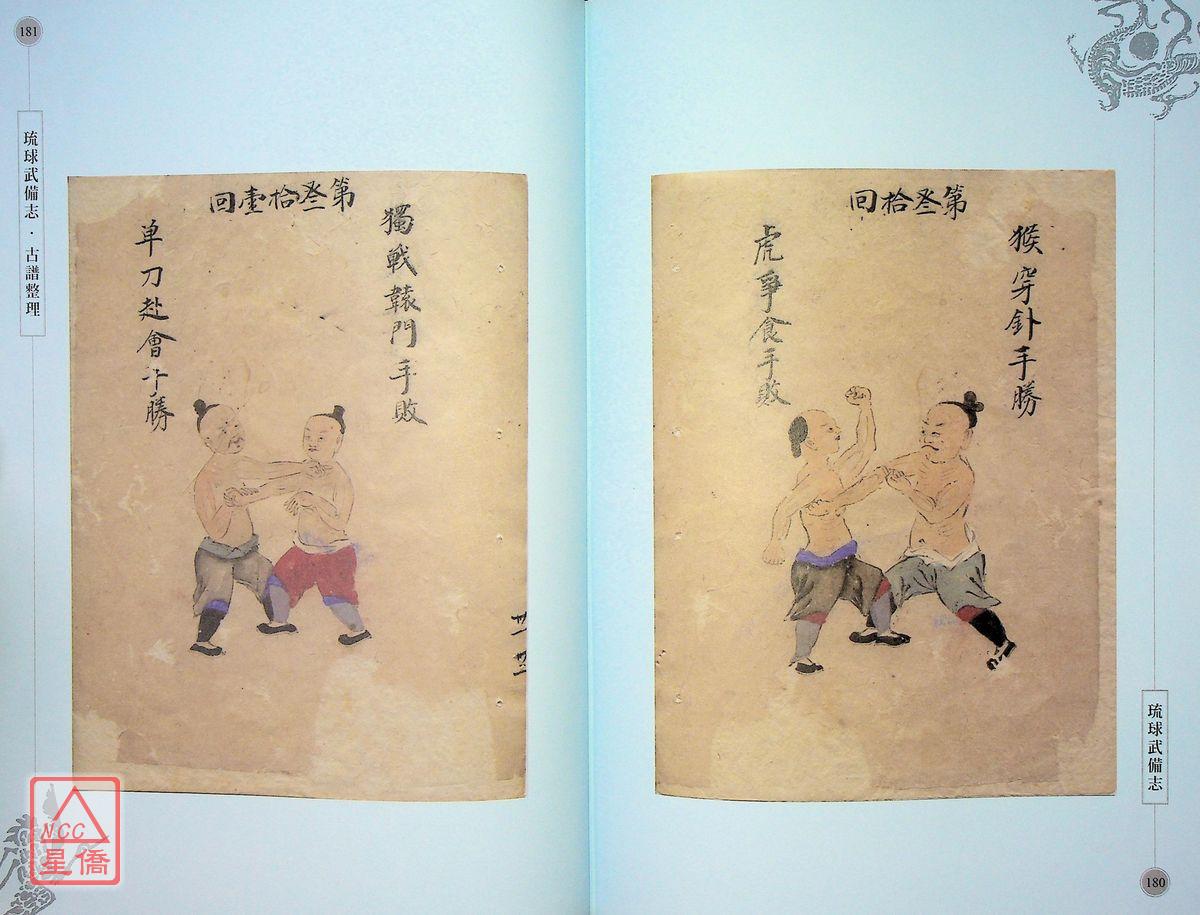 琉球武備志
180
第叁拾回
猴穿針手勝
虎爭食手敗
181
琉球武備志・古譜整理
第叁拾壹回
獨戰轅門手敗
單刀赴會手勝
NCC
星僑